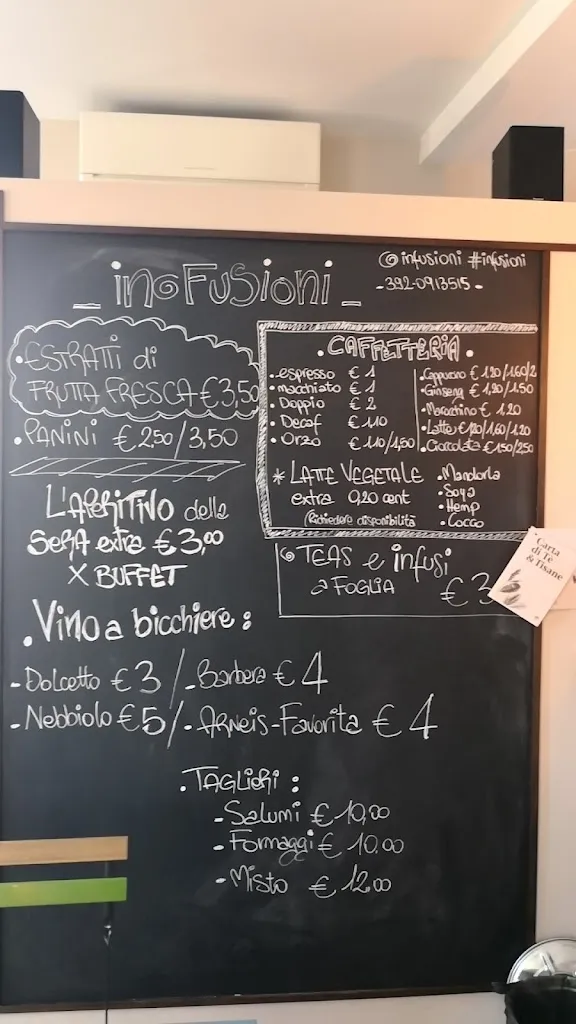 - inFusioni -
@infusioni #infusioni
- 392-0913515 -
• ESTRATTI di
FRUTTA FRESCA €3,50
• PANINI €2,50/3,50
L'APERITIVO della
SERA extra €3,00
X BUFFET
• CAFFETTERIA •
• espresso € 1
• macchiato € 1
• Doppio € 2
• Decaf € 1,10
• Orzo € 1,10/1,50
• Cappuccino € 1,20/1,60/2
• Ginseng € 1,20/1,50
• Marocchino € 1,20
• Latte €1,20/1,60/1,20
• Cioccolata €1,50/2,50
* LATTE VEGETALE
extra 0,20 cent
(Richiedere disponibilità
• Mandorla
• Soya
• Hemp
• Cocco
TEAS e infusi
a FOGLIA € 3
Carta
di Tè
& Tisane
• Vino a bicchiere :
- Dolcetto €3 / - Barbera € 4
- Nebbiolo €5 / - Arneis-Favorita € 4
• TAGLIERI :
- Salumi € 10,00
- Formaggi € 10.00
- Misto € 12.00